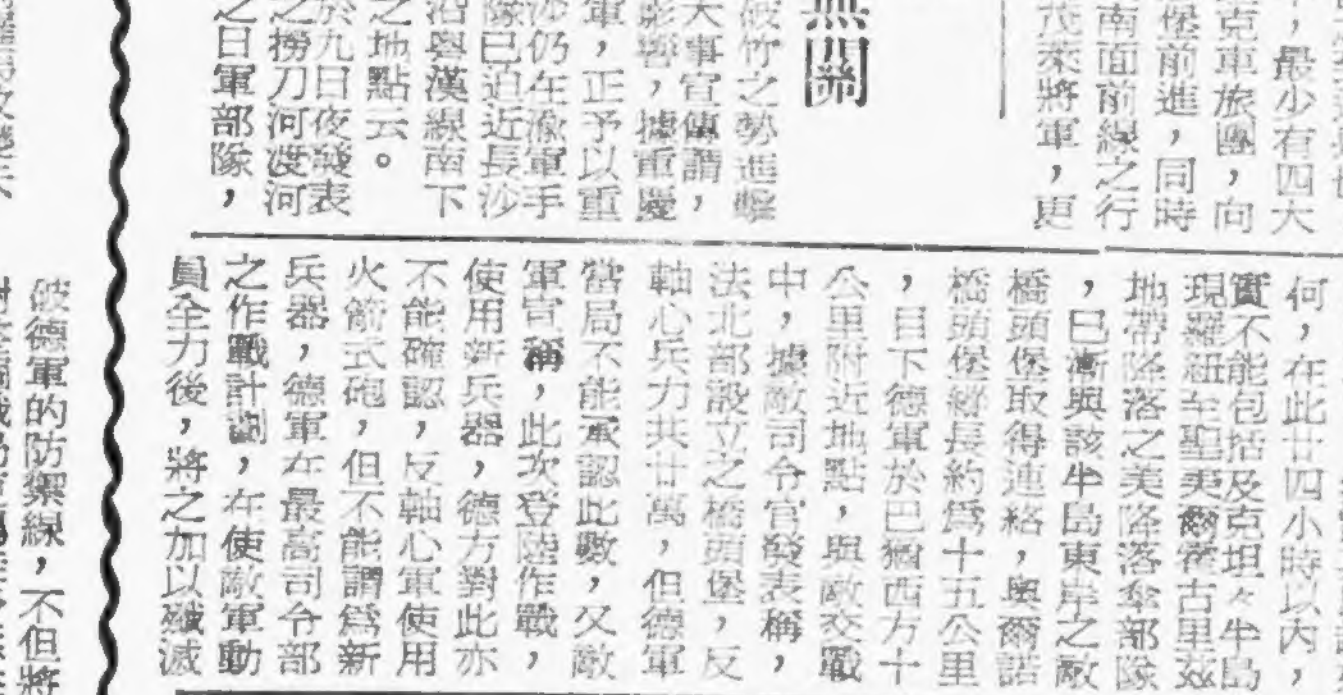 ，最少有四大
克車旅團，向
堡前進，同時
南面前線之行
茂萊將軍，更
無關
破竹之勢進擊
大事宣傳謂，
影響，據重慶
軍，正予以重
沙仍在渝軍手
隊已迫近長沙
沿粵漢線南下
之地點云。
於九日夜發表
之撈刀河渡河
之日軍部隊，
何，在此廿四小時以內，
實不能包括及克坦々半島
現羅紐至聖美爾霍古里茲
地帶降落之美降落傘部隊
，已漸與該半島東岸之敵
橋頭堡取得連絡，奧爾諾
橋頭堡縱長約爲十五公里
，目下德軍於巴猶西方十
公里附近地點，與敵交戰
中，據敵司令官發表稱，
法北部設立之橋頭堡，反
軸心兵力共廿萬，但德軍
當局不能承認此數，又敵
軍官稱，此次登陸作戰，
使用新兵器，德方對此亦
不能確認，反軸心軍使用
火箭式砲，但不能謂爲新
兵器，德軍在最高司令部
之作戰計劃，在使敵軍動
員全力後，將之加以殲滅
破德軍的防禦線，不但將